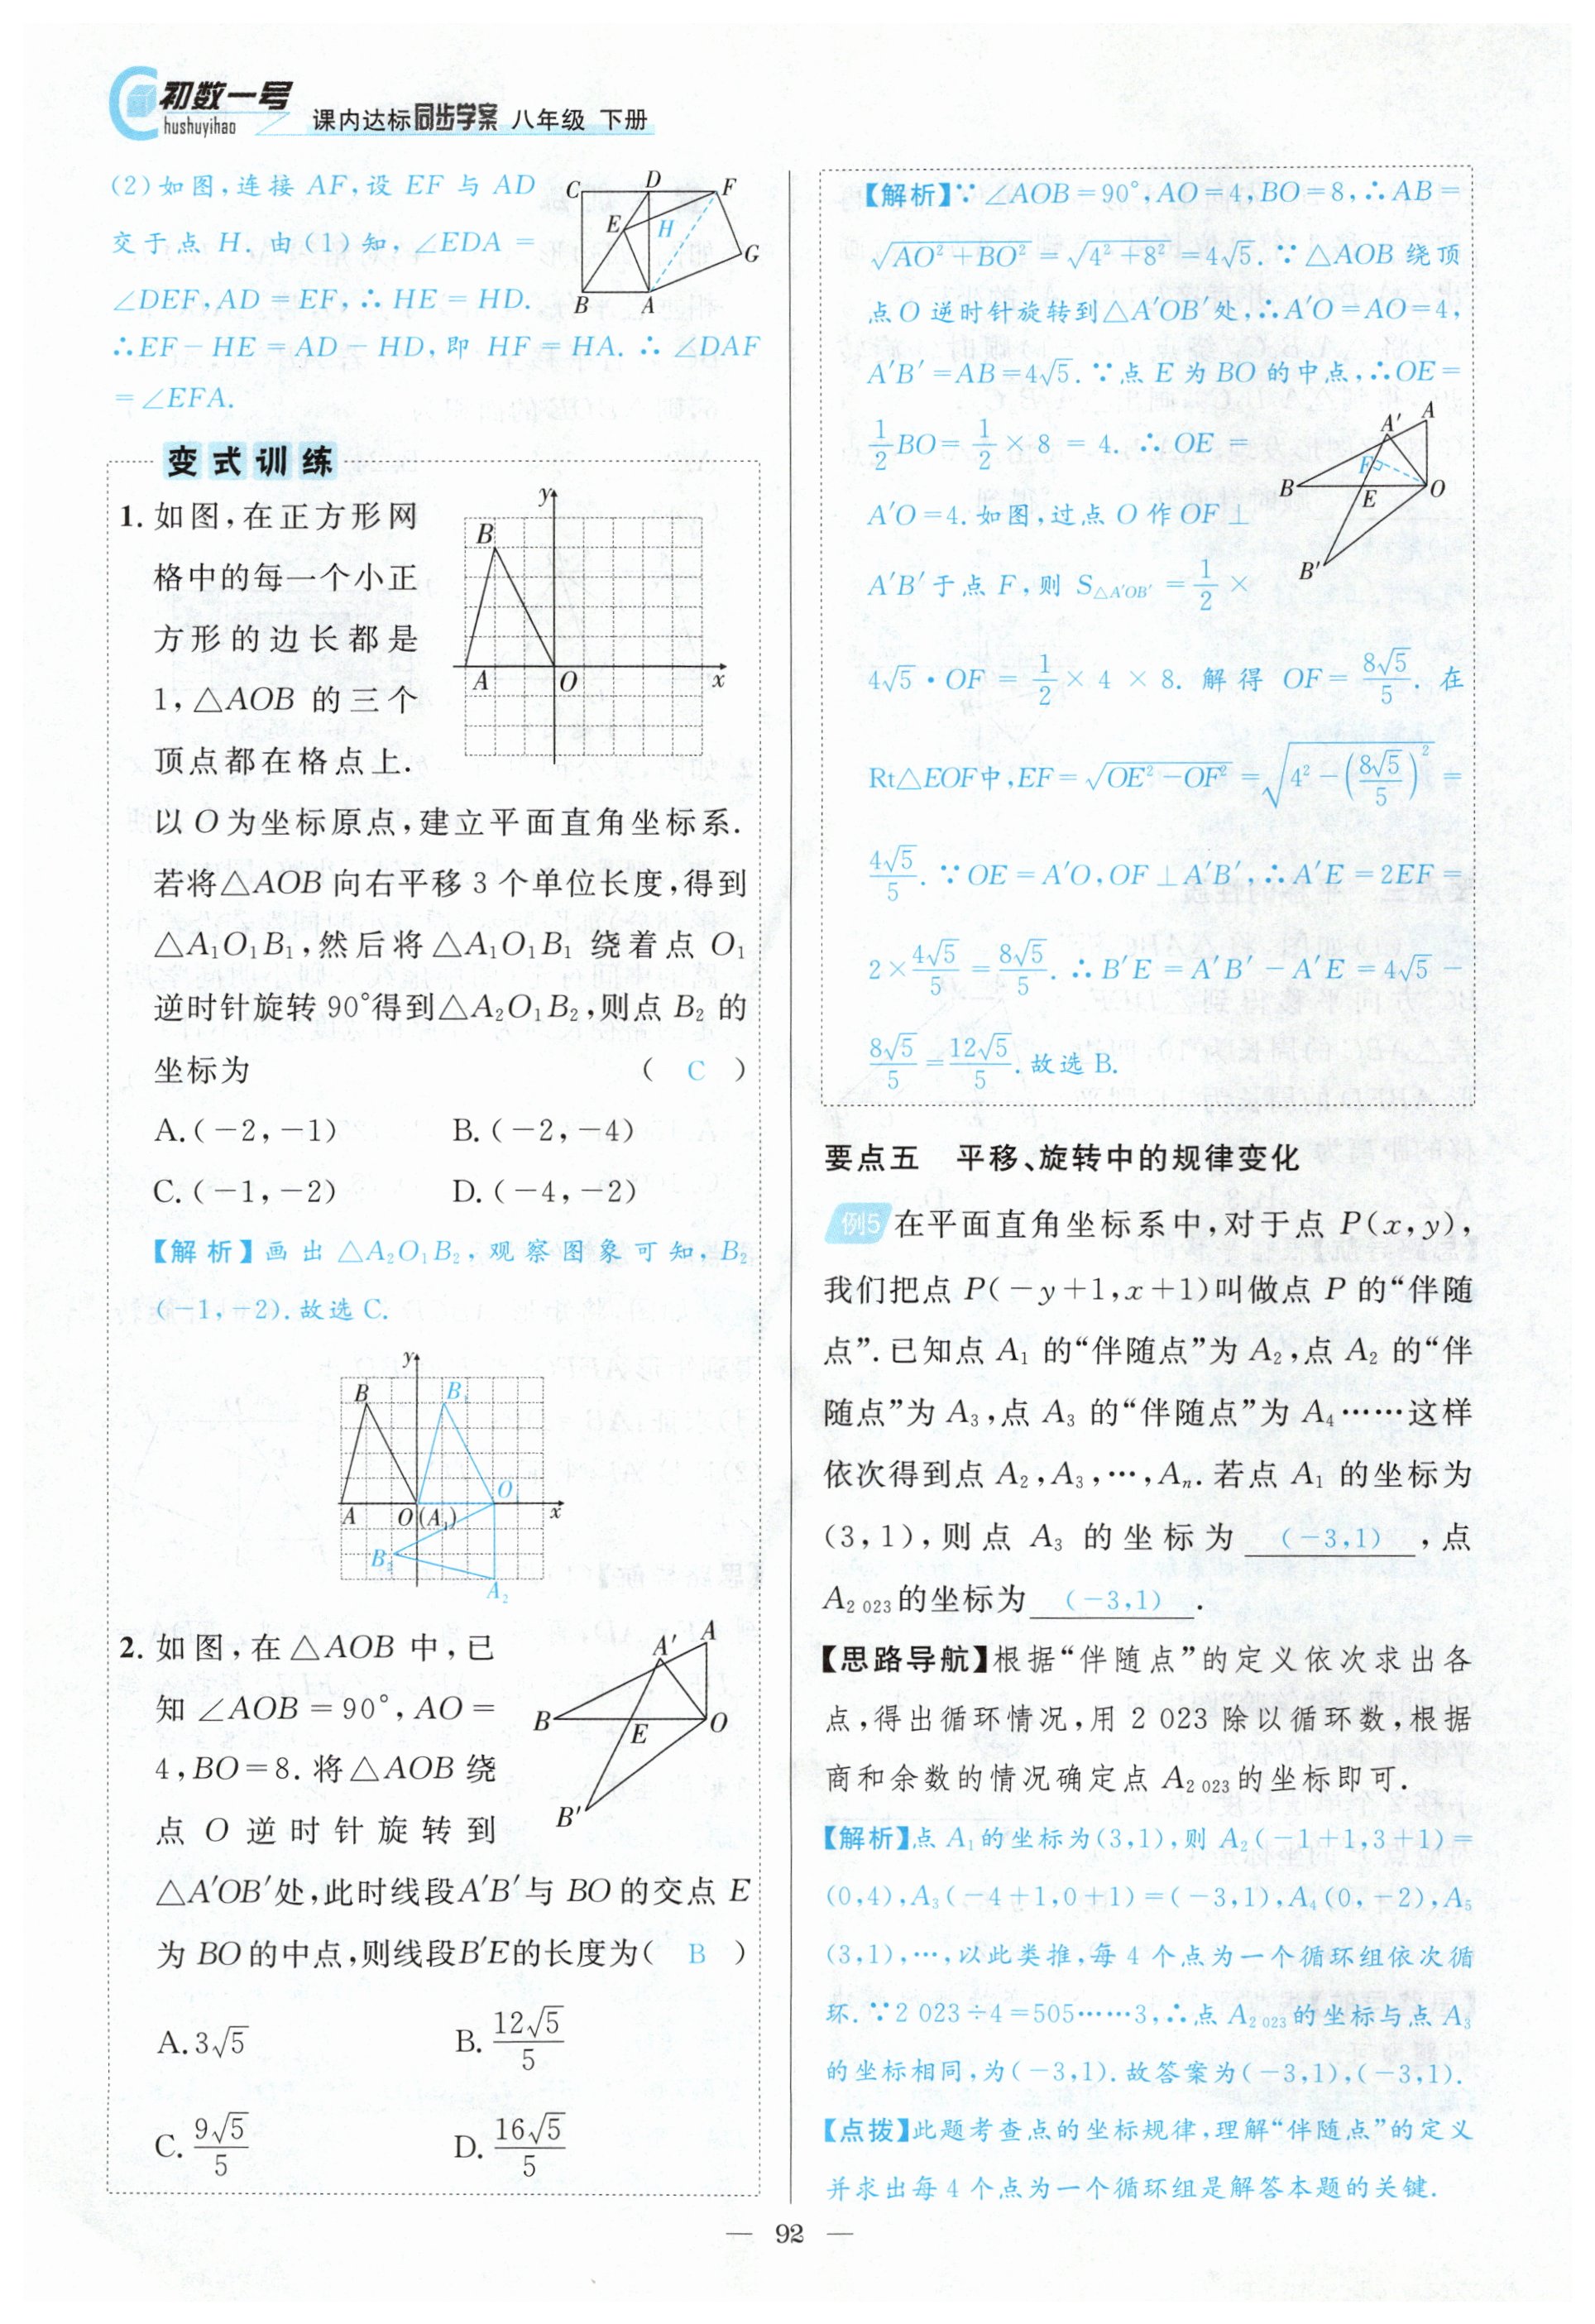 初数一号
hushuyihao
课内达标同步学案 八年级 下册
(2)如图,连接 AF,设 EF 与 AD
交于点 H. 由(1)知, ∠EDA =
∠DEF, AD = EF, ∴ HE = HD.
∴EF - HE = AD - HD, 即 HF = HA. ∴ ∠DAF
= ∠EFA.
C D F
E H
G
B A
变式训练
1. 如图,在正方形网
格中的每一个小正
方形的边长都是
1, △AOB 的三个
顶点都在格点上.
以 O 为坐标原点,建立平面直角坐标系.
若将△AOB 向右平移 3 个单位长度,得到
△A₁O₁B₁,然后将△A₁O₁B₁ 绕着点 O₁
逆时针旋转 90°得到△A₂O₁B₂,则点 B₂ 的
坐标为 ( C )
y
B
A O x
A.(-2,-1) B.(-2,-4)
C.(-1,-2) D.(-4,-2)
【解析】画出 △A₂O₁B₂,观察图象可知,B₂
(-1,-2).故选 C.
y
B B₁
O
A O (A₁) x
B₂
A₂
2. 如图,在△AOB 中,已
知 ∠AOB = 90°, AO =
4, BO=8. 将△AOB 绕
点 O 逆时针旋转到
△A′OB′处,此时线段A′B′与 BO 的交点 E
为 BO 的中点,则线段B′E的长度为( B )
A′ A
B E O
B′
A. 3√5 B. 12√5/5
C. 9√5/5 D. 16√5/5
【解析】∵ ∠AOB=90°, AO=4, BO=8, ∴ AB=
√(AO²+BO²) = √(4²+8²) = 4√5. ∵ △AOB 绕顶
点 O 逆时针旋转到△A′OB′处, ∴A′O=AO=4,
A′B′=AB=4√5. ∵点 E 为 BO 的中点, ∴OE=
1/2 BO = 1/2 × 8 = 4. ∴ OE =
A′O=4. 如图,过点 O 作 OF ⊥
A′B′于点 F,则 S△A′OB′ = 1/2 ×
A′ A
F
B E O
B′
4√5 · OF = 1/2 × 4 × 8. 解得 OF = 8√5/5. 在
Rt△EOF中, EF = √(OE²-OF²) = √(4²-(8√5/5)²) =
4√5/5. ∵ OE = A′O, OF ⊥ A′B′, ∴ A′E = 2EF =
2×4√5/5 = 8√5/5. ∴ B′E = A′B′ - A′E = 4√5 -
8√5/5 = 12√5/5. 故选 B.
要点五 平移、旋转中的规律变化
例5 在平面直角坐标系中,对于点 P(x,y),
我们把点 P(-y+1,x+1)叫做点 P 的“伴随
点”.已知点 A₁ 的“伴随点”为 A₂,点 A₂ 的“伴
随点”为 A₃,点 A₃ 的“伴随点”为 A₄……这样
依次得到点 A₂,A₃,…,Aₙ. 若点 A₁ 的坐标为
(3,1),则点 A₃ 的坐标为 (-3,1) ,点
A₂ ₀₂₃的坐标为 (-3,1) .
【思路导航】根据“伴随点”的定义依次求出各
点,得出循环情况,用 2 023 除以循环数,根据
商和余数的情况确定点 A₂ ₀₂₃的坐标即可.
【解析】点 A₁的坐标为(3,1),则 A₂(-1+1,3+1)=
(0,4),A₃(-4+1,0+1)=(-3,1),A₄(0,-2),A₅
(3,1),…,以此类推,每 4 个点为一个循环组依次循
环.∵2 023÷4=505……3,∴点 A₂ ₀₂₃的坐标与点 A₃
的坐标相同,为(-3,1).故答案为(-3,1),(-3,1).
【点拨】此题考查点的坐标规律,理解“伴随点”的定义
并求出每 4 个点为一个循环组是解答本题的关键.
— 92 —